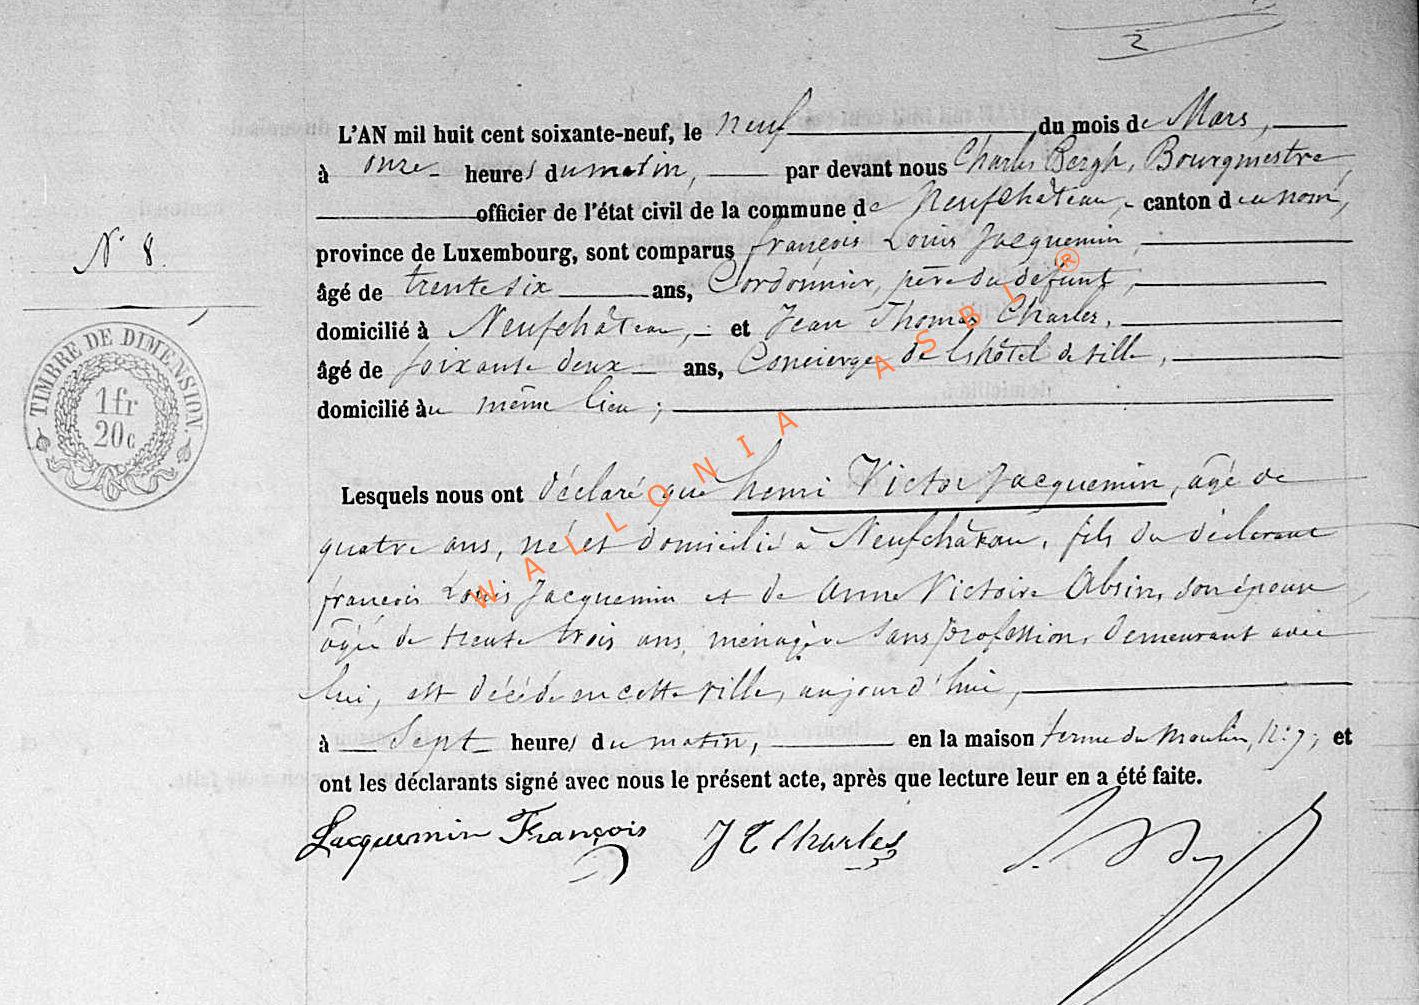 2
L'AN mil huit cent soixante-neuf, le neuf du mois de Mars,
à onze heures du matin, par devant nous Charles Bergh, Bourgmestre,
officier de l'état civil de la commune de Neufchâteau, canton du nom,
province de Luxembourg, sont comparus françois Louis Jacquemin,
N° 8.
âgé de trente six ans, Cordonnier, père du défunt,
domicilié à Neufchâteau, et Jean Thomas Charles,
âgé de soixante deux ans, Concierge de l'hôtel de ville,
domicilié au même lieu;
TIMBRE DE DIMENSION.
1fr
20c
Lesquels nous ont déclaré que henri Victor Jacquemin, âgé de
quatre ans, né et domicilié à Neufchâteau, fils du déclarant
françois Louis Jacquemin et de Anne Victoire Absin, son épouse
âgée de trente trois ans, ménagère sans profession, demeurant avec
lui, est décédé en cette ville, aujourd'hui,
à sept heures du matin, en la maison du Moulin, N° 7; et
ont les déclarants signé avec nous le présent acte, après que lecture leur en a été faite.
Jacquemin François J T Charles
WALLONIA ASBL ®